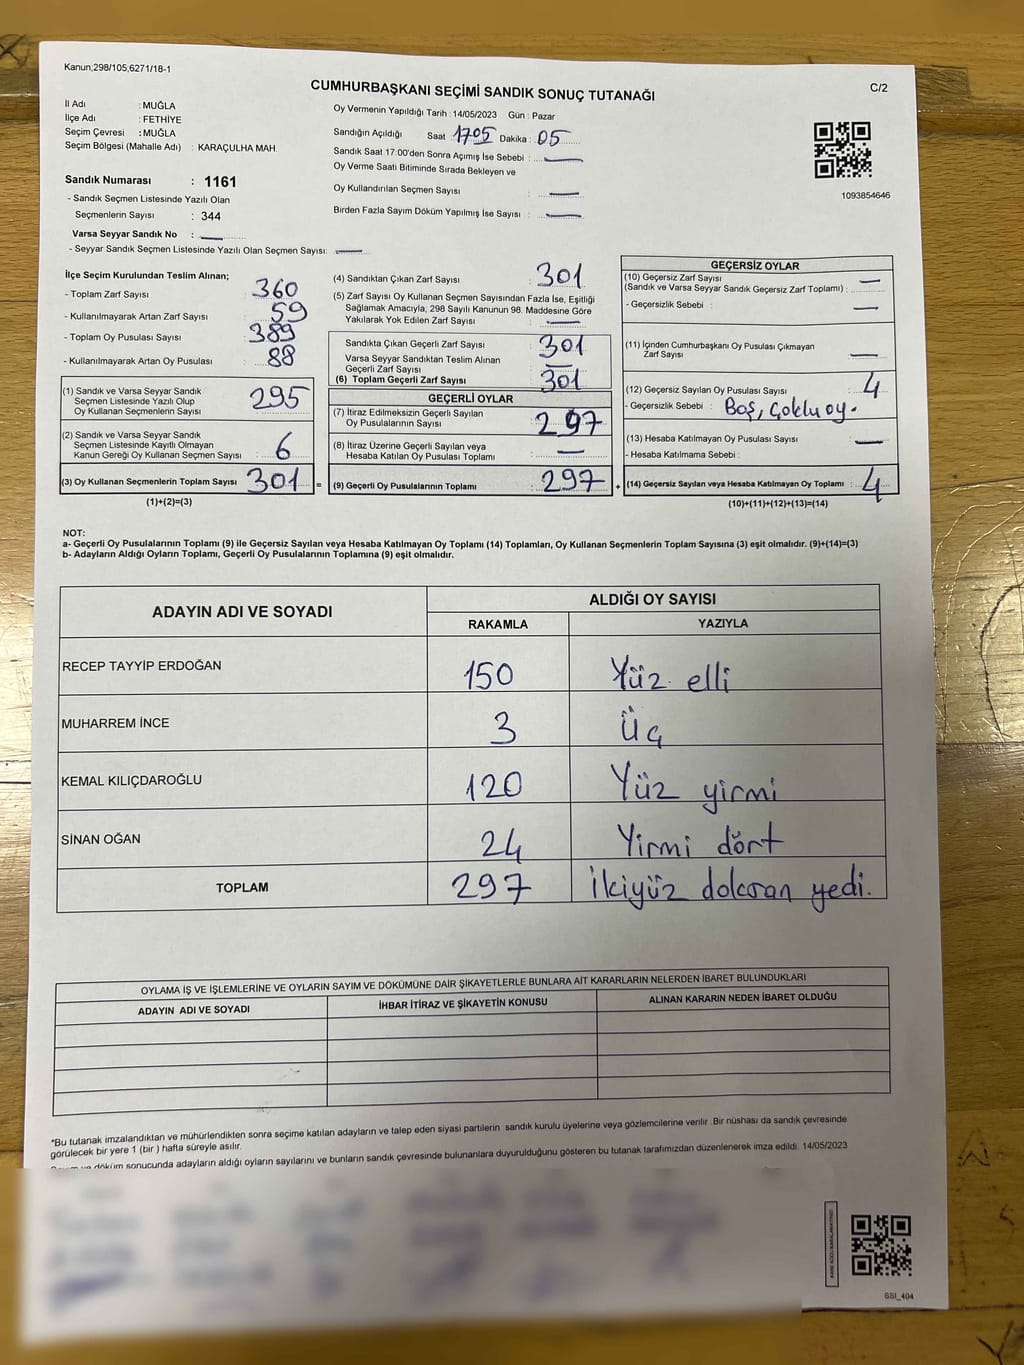 Kanun;298/105,6271/18-1
CUMHURBAŞKANI SEÇİMİ SANDIK SONUÇ TUTANAĞI
C/2
İl Adı : MUĞLA
İlçe Adı : FETHİYE
Seçim Çevresi : MUĞLA
Seçim Bölgesi (Mahalle Adı) : KARAÇULHA MAH.
Sandık Numarası : 1161
- Sandık Seçmen Listesinde Yazılı Olan
Seçmenlerin Sayısı : 344
Varsa Seyyar Sandık No : —
- Seyyar Sandık Seçmen Listesinde Yazılı Olan Seçmen Sayısı: —
Oy Vermenin Yapıldığı Tarih : 14/05/2023 Gün : Pazar
Sandığın Açıldığı Saat : 1705 Dakika : 05
Sandık Saat 17:00'den Sonra Açımış İse Sebebi : —
Oy Verme Saati Bitiminde Sırada Bekleyen ve
Oy Kullandırılan Seçmen Sayısı : —
Birden Fazla Sayım Döküm Yapılmış İse Sayısı : —
1093854646
İlçe Seçim Kurulundan Teslim Alınan;
- Toplam Zarf Sayısı : 360
- Kullanılmayarak Artan Zarf Sayısı : 59
- Toplam Oy Pusulası Sayısı : 389
- Kullanılmayarak Artan Oy Pusulası : 88
(1) Sandık ve Varsa Seyyar Sandık
Seçmen Listesinde Yazılı Olup
Oy Kullanan Seçmenlerin Sayısı : 295
(2) Sandık ve Varsa Seyyar Sandık
Seçmen Listesinde Kayıtlı Olmayan
Kanun Gereği Oy Kullanan Seçmen Sayısı : 6
(3) Oy Kullanan Seçmenlerin Toplam Sayısı : 301
(1)+(2)=(3)
(4) Sandıktan Çıkan Zarf Sayısı : 301
(5) Zarf Sayısı Oy Kullanan Seçmen Sayısından Fazla İse, Eşitliği
Sağlamak Amacıyla; 298 Sayılı Kanunun 98. Maddesine Göre
Yakılarak Yok Edilen Zarf Sayısı : —
Sandıkta Çıkan Geçerli Zarf Sayısı : 301
Varsa Seyyar Sandıktan Teslim Alınan
Geçerli Zarf Sayısı : —
(6) Toplam Geçerli Zarf Sayısı : 301
GEÇERLİ OYLAR
(7) İtiraz Edilmeksizin Geçerli Sayılan
Oy Pusulalarının Sayısı : 297
(8) İtiraz Üzerine Geçerli Sayılan veya
Hesaba Katılan Oy Pusulası Toplamı : —
= (9) Geçerli Oy Pusulalarının Toplamı : 297 +
GEÇERSİZ OYLAR
(10) Geçersiz Zarf Sayısı
(Sandık ve Varsa Seyyar Sandık Geçersiz Zarf Toplamı) : —
- Geçersizlik Sebebi : —
(11) İçinden Cumhurbaşkanı Oy Pusulası Çıkmayan
Zarf Sayısı : —
(12) Geçersiz Sayılan Oy Pusulası Sayısı : 4
- Geçersizlik Sebebi : Boş, Çoklu oy.
(13) Hesaba Katılmayan Oy Pusulası Sayısı : —
- Hesaba Katılmama Sebebi :
(14) Geçersiz Sayılan veya Hesaba Katılmayan Oy Toplamı : 4
(10)+(11)+(12)+(13)=(14)
NOT:
a- Geçerli Oy Pusulalarının Toplamı (9) ile Geçersiz Sayılan veya Hesaba Katılmayan Oy Toplamı (14) Toplamları, Oy Kullanan Seçmenlerin Toplam Sayısına (3) eşit olmalıdır. (9)+(14)=(3)
b- Adayların Aldığı Oyların Toplamı, Geçerli Oy Pusulalarının Toplamına (9) eşit olmalıdır.
ADAYIN ADI VE SOYADI
ALDIĞI OY SAYISI
RAKAMLA YAZIYLA
RECEP TAYYİP ERDOĞAN 150 Yüz elli
MUHARREM İNCE 3 Üç
KEMAL KILIÇDAROĞLU 120 Yüz yirmi
SİNAN OĞAN 24 Yirmi dört
TOPLAM 297 İkiyüz doksan yedi.
OYLAMA İŞ VE İŞLEMLERİNE VE OYLARIN SAYIM VE DÖKÜMÜNE DAİR ŞİKAYETLERLE BUNLARA AİT KARARLARIN NELERDEN İBARET BULUNDUKLARI
ADAYIN ADI VE SOYADI İHBAR İTİRAZ VE ŞİKAYETİN KONUSU ALINAN KARARIN NEDEN İBARET OLDUĞU
*Bu tutanak imzalandıktan ve mühürlendikten sonra seçime katılan adayların ve talep eden siyasi partilerin sandık kurulu üyelerine veya gözlemcilerine verilir .Bir nüshası da sandık çevresinde
görülecek bir yere 1 (bir ) hafta süreyle asılır.
ve döküm sonucunda adayların aldığı oyların sayılarını ve bunların sandık çevresinde bulunanlara duyurulduğunu gösteren bu tutanak tarafımızdan düzenlenerek imza edildi. 14/05/2023
SSI_404